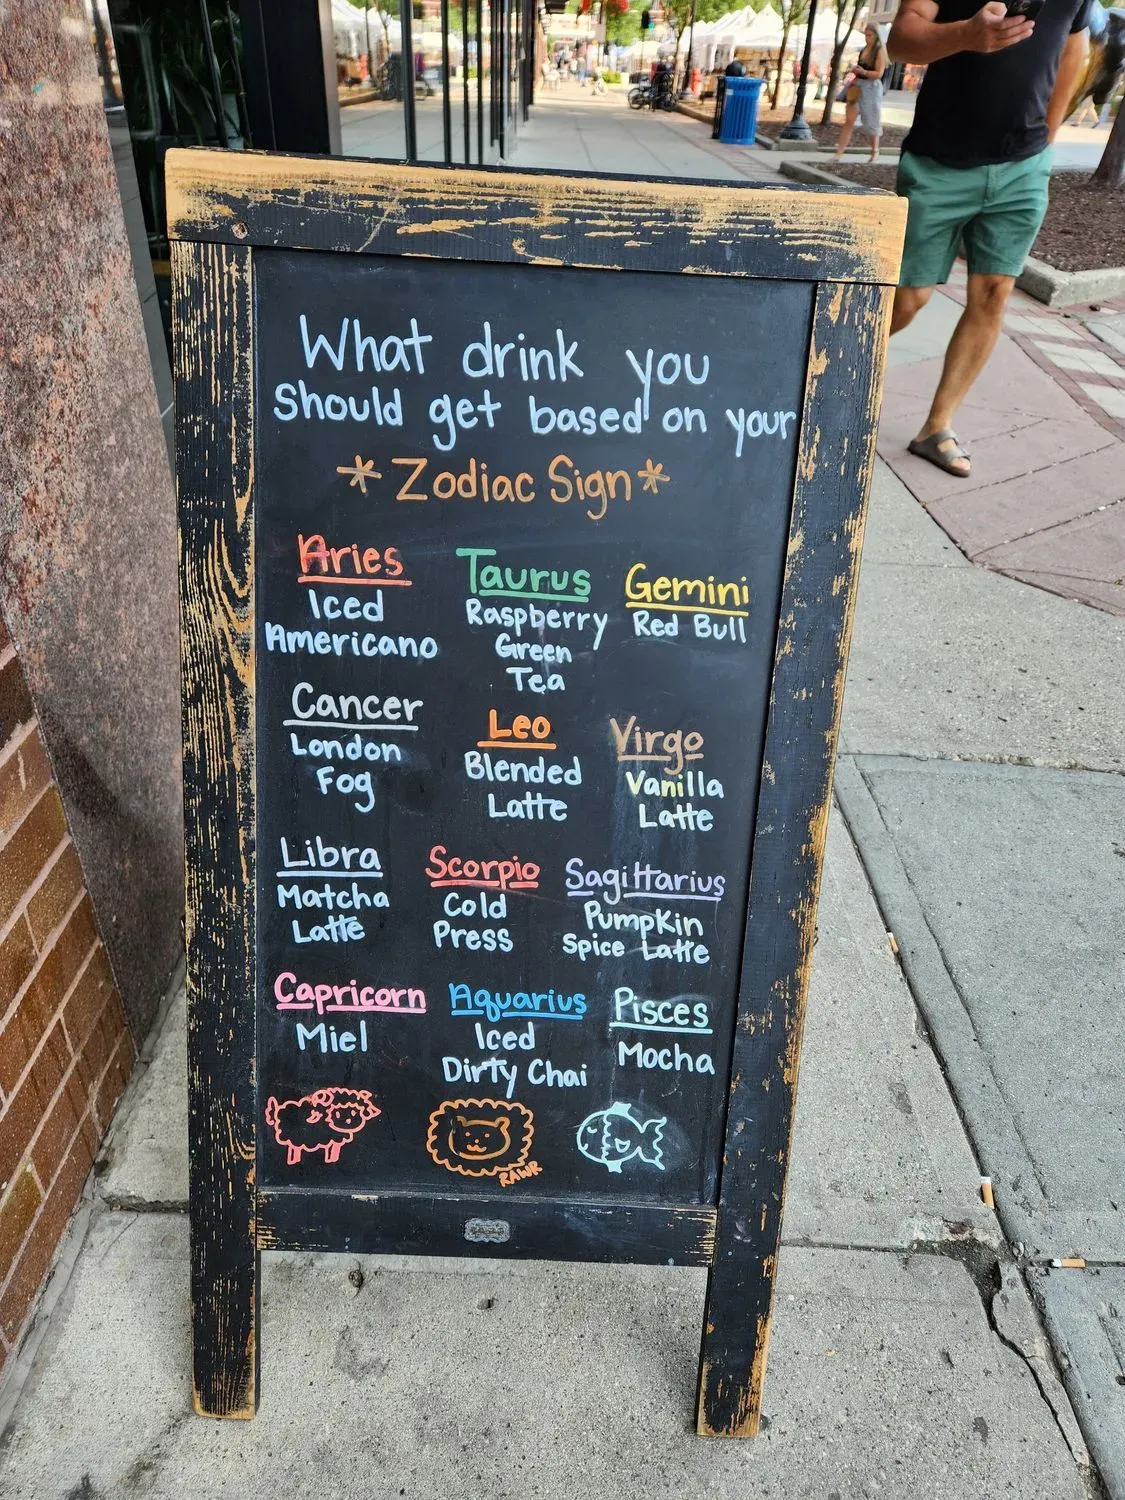 What drink you
Should get based on your
*Zodiac Sign*
Aries
Iced
Americano
Taurus
Raspberry
Green
Tea
Gemini
Red Bull
Cancer
London
Fog
Leo
Blended
Latte
Virgo
Vanilla
Latte
Libra
Matcha
Latte
Scorpio
Cold
Press
Sagittarius
Pumpkin
Spice Latte
Capricorn
Miel
Aquarius
Iced
Dirty Chai
Pisces
Mocha
RAWR